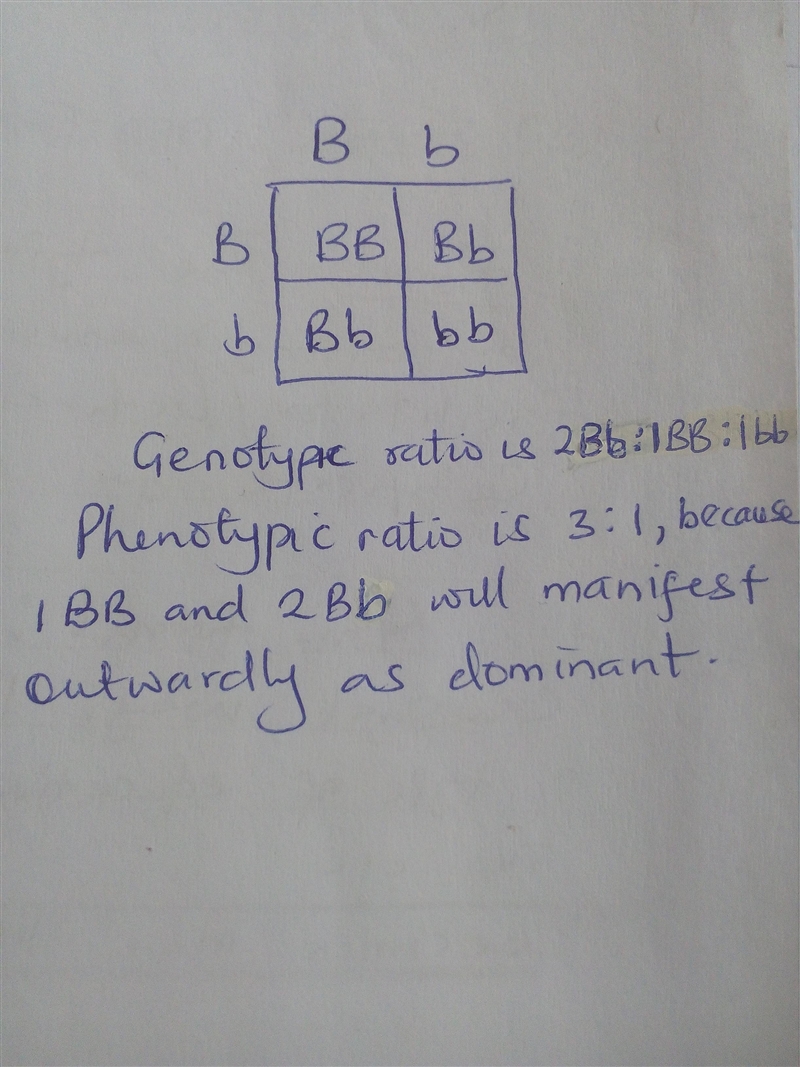 B b
B BB Bb
b Bb bb
Genotypic ratio is 2Bb:1BB:1bb
Phenotypic ratio is 3:1, because
1 BB and 2Bb will manifest
outwardly as dominant.